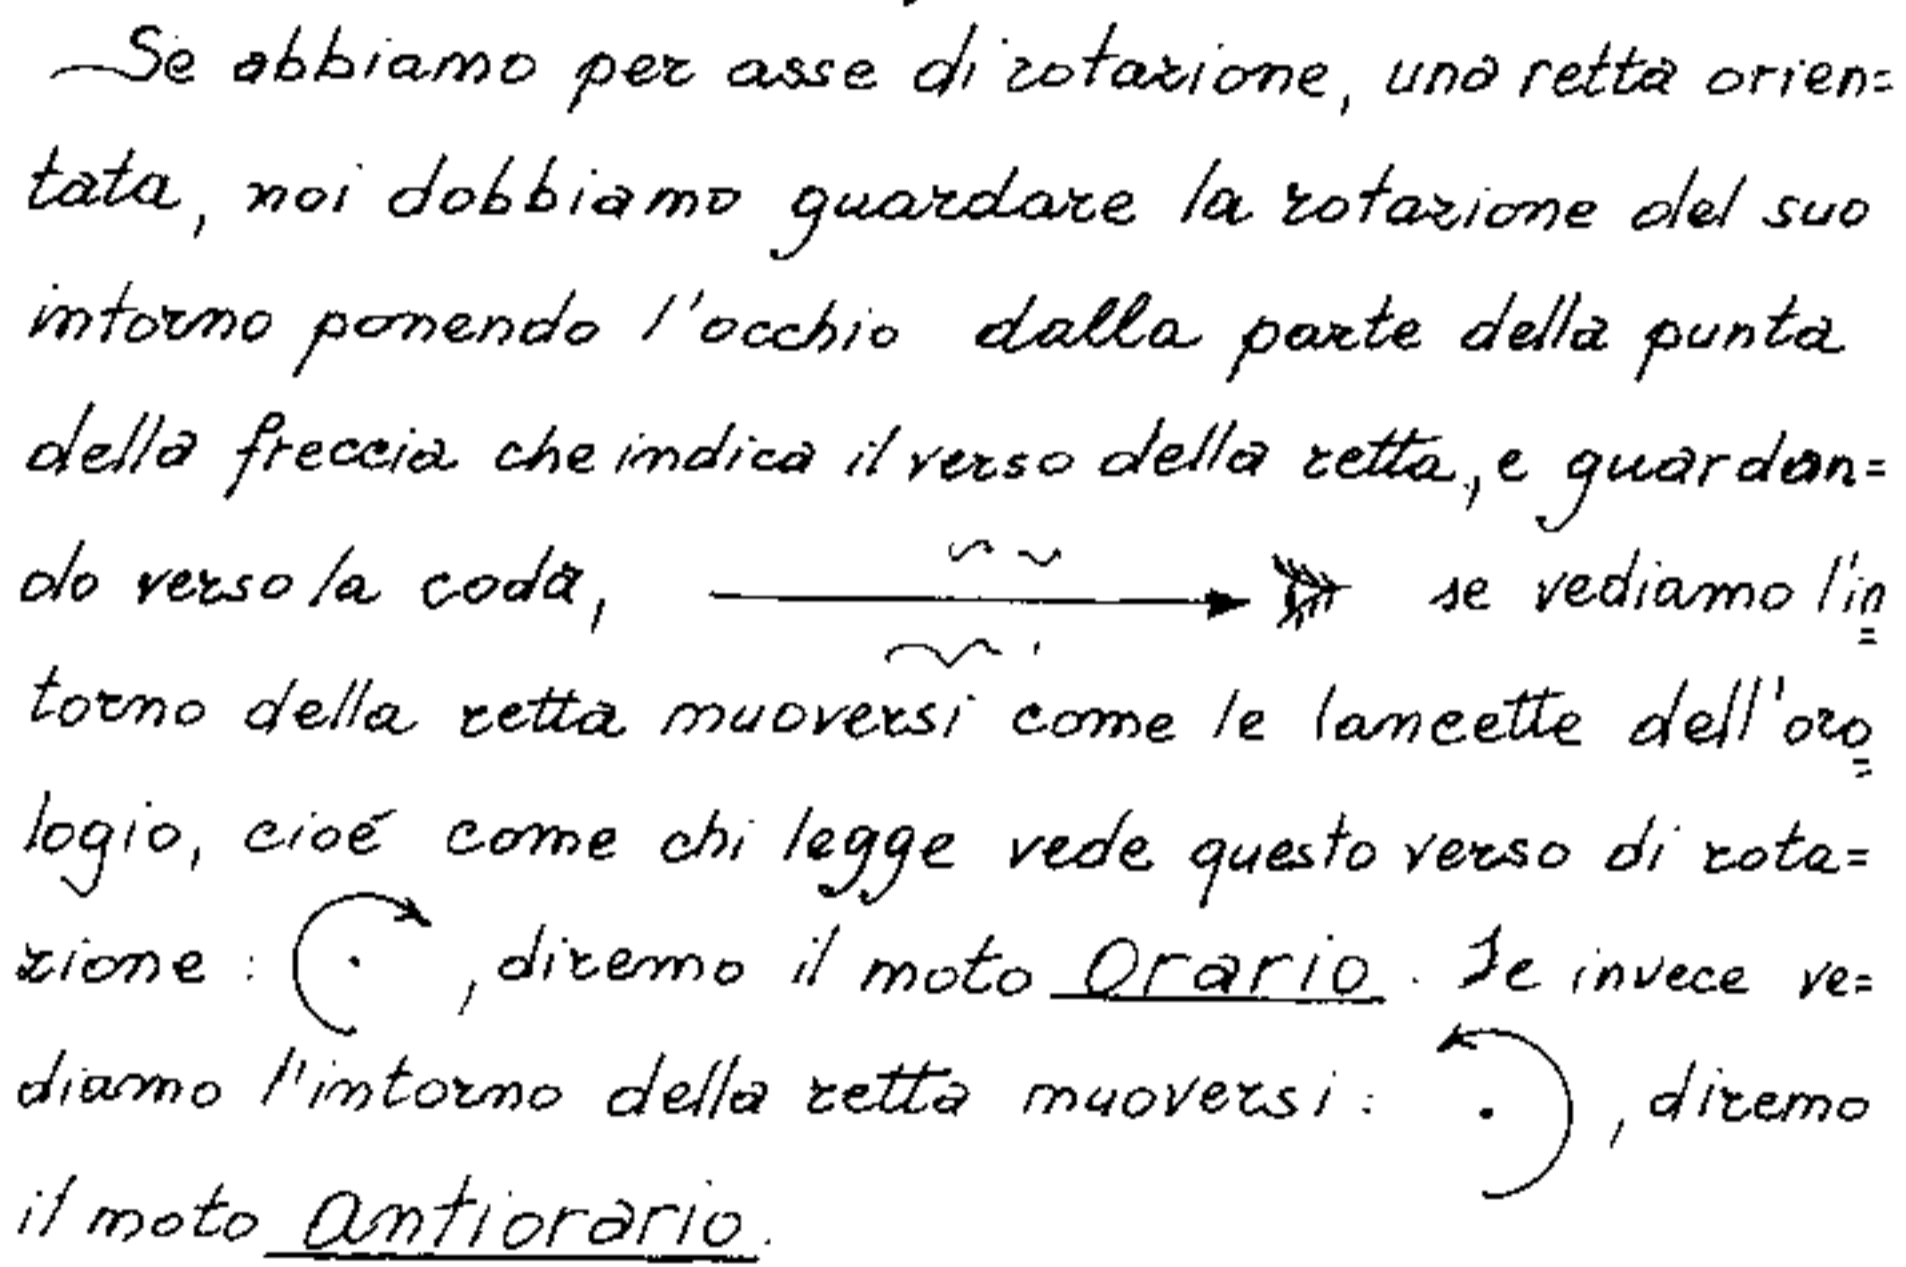 Se abbiamo per asse di rotazione, una retta orien=
tata, noi dobbiamo guardare la rotazione del suo
intorno ponendo l'occhio dalla parte della punta
della freccia che indica il verso della retta, e guardan=
do verso la coda, se vediamo l'in=
torno della retta muoversi come le lancette dell'oro=
logio, cioé come chi legge vede questo verso di rota=
zione: , diremo il moto Orario. Se invece ve=
diamo l'intorno della retta muoversi: , diremo
il moto Antiorario.